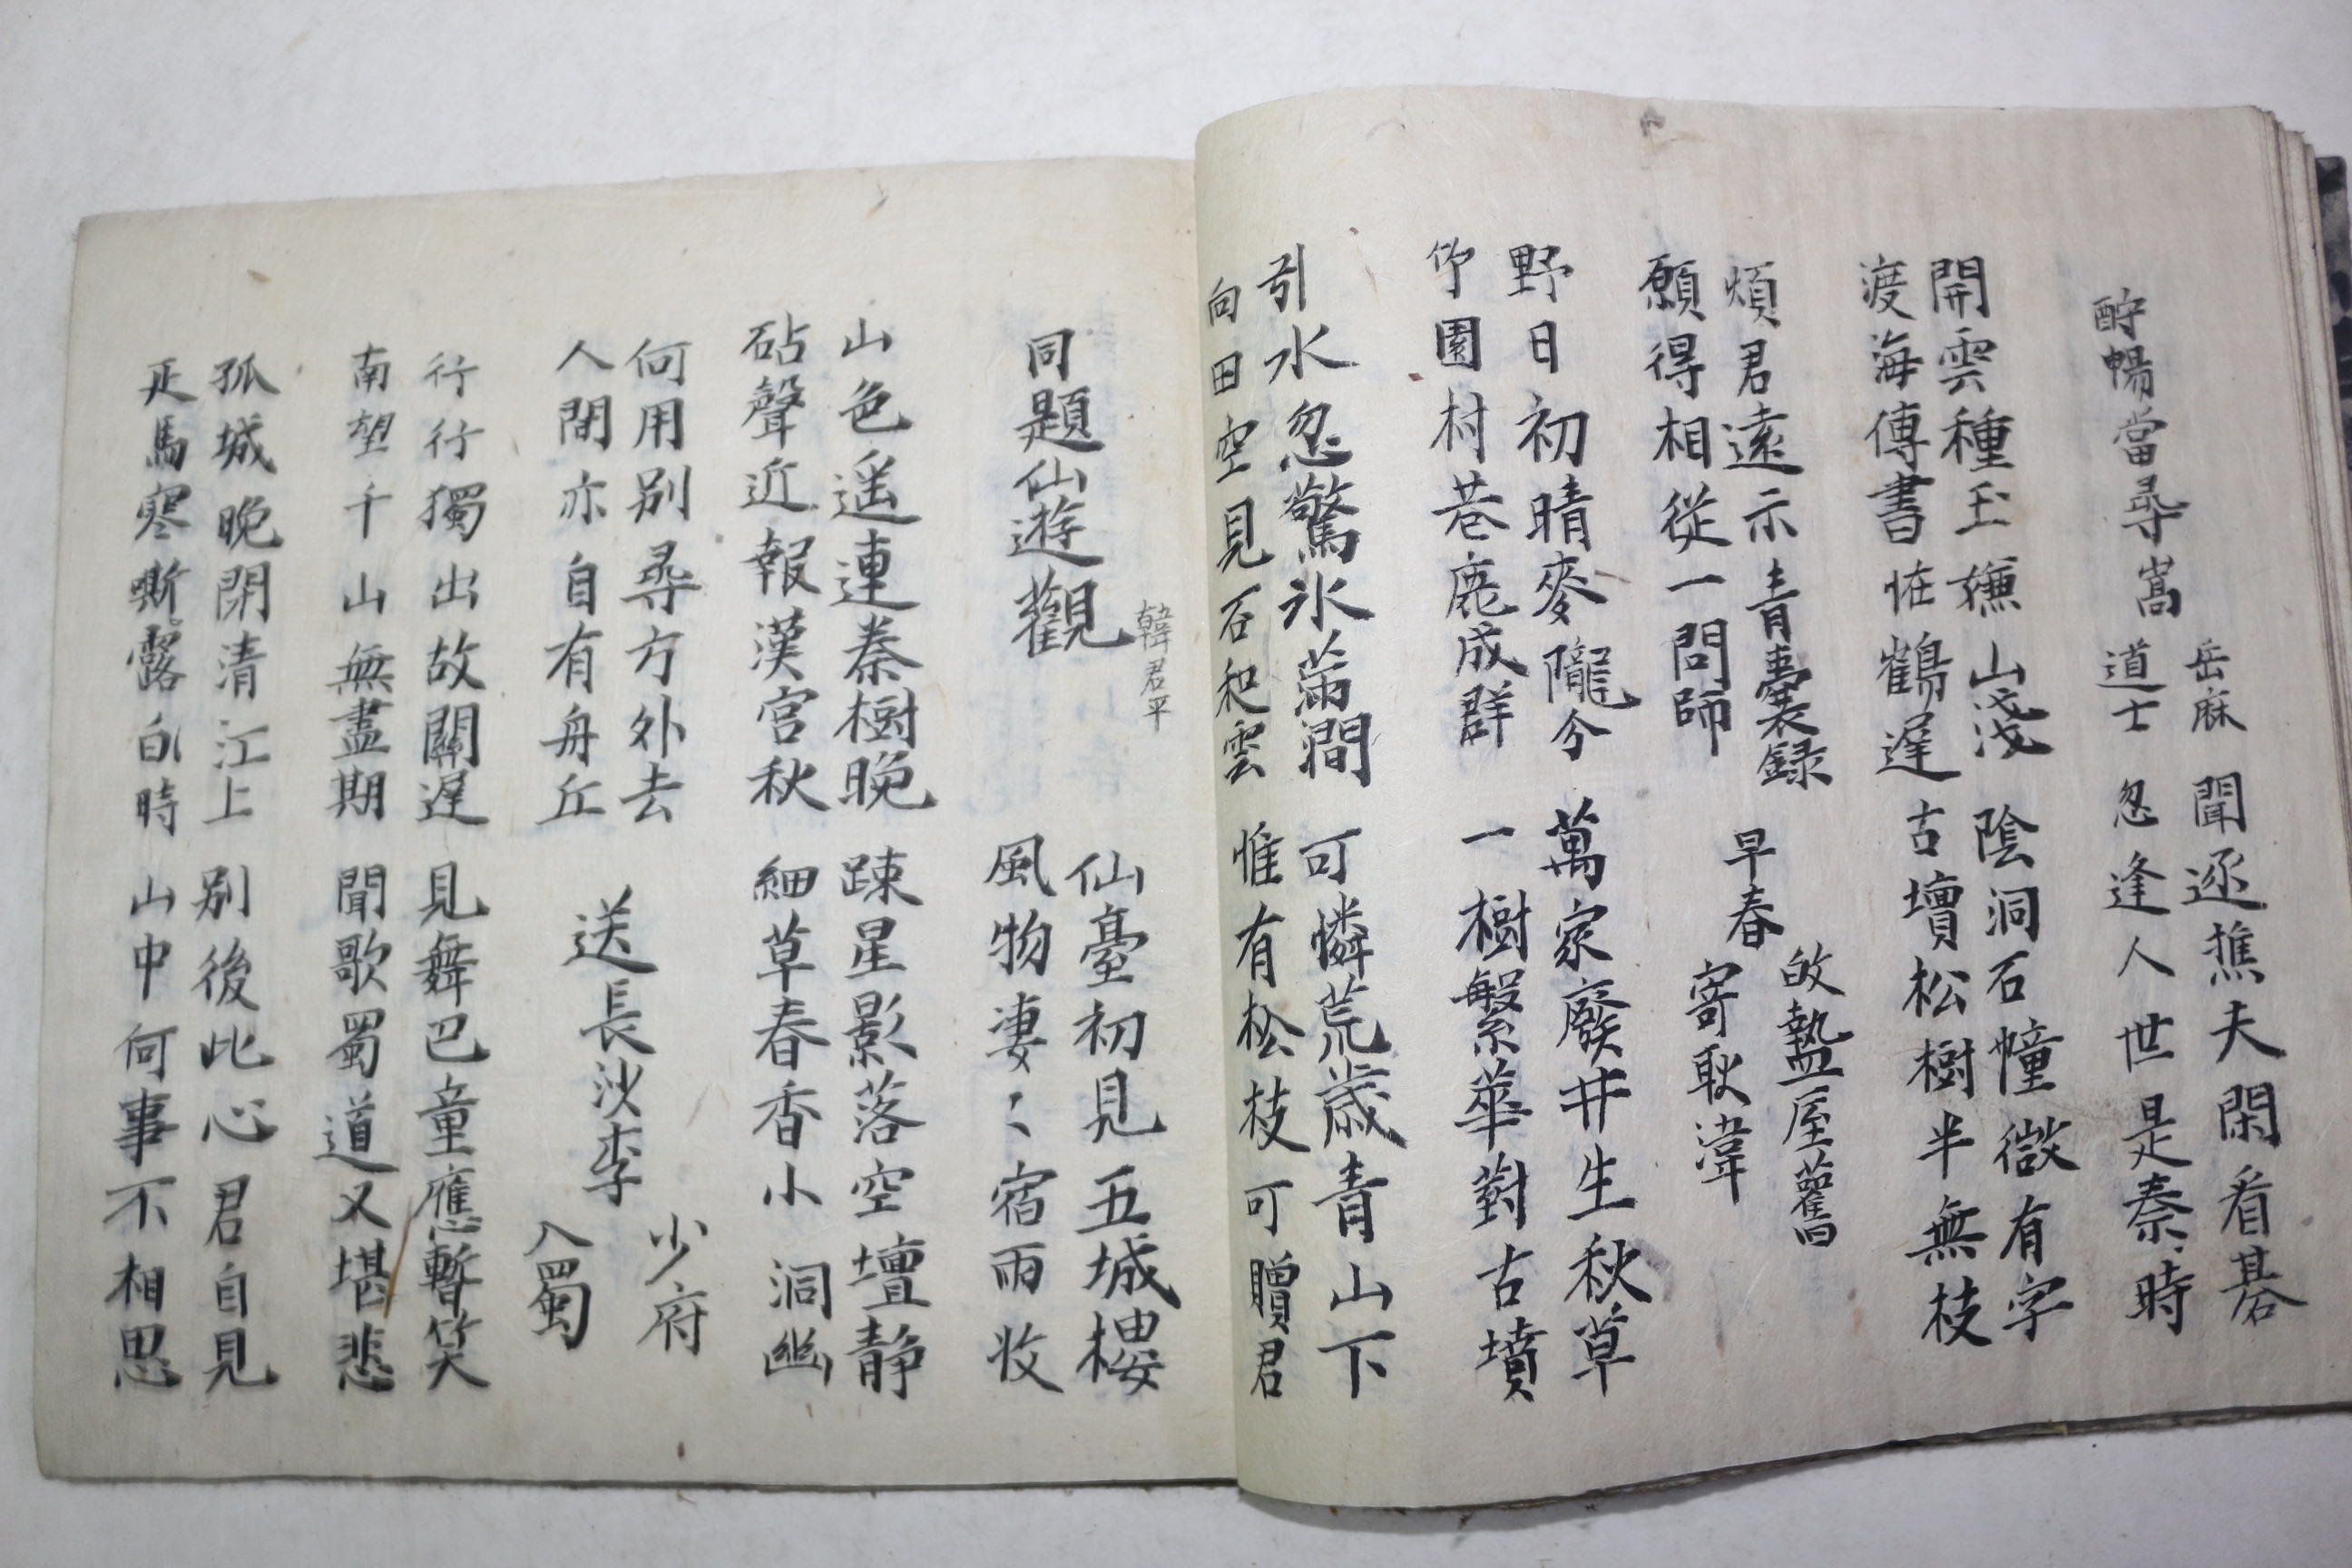 酧暢當尋嵩
岳麻
道士
聞逐樵夫閑看碁
忽逢人世是秦時
開雲種玉嫌山淺
渡海傳書恠鶴遲
陰洞石幢微有字
古壇松樹半無枝
煩君遠示青囊録
願得相從一問師
早春
故盩厔舊
寄耿湋
野日初晴麥隴分
竹園村巷鹿成群
萬家廢井生秋草
一樹繁華對古墳
引水忽驚氷滿澗
向田空見石和雲
可憐荒歲青山下
惟有松枝可贈君
同題仙遊觀
韓君平
仙臺初見五城樓
風物凄〻宿雨收
山色遥連秦樹晚
砧聲近報漢宮秋
踈星影落空壇静
細草春香小洞幽
何用別尋方外去
人間亦自有舟丘
送長沙李
少府
入蜀
行行獨出故關遲
南望千山無盡期
見舞巴童應暫笑
聞歌蜀道又堪悲
孤城晚閉清江上
疋馬寒嘶露白時
別後此心君自見
山中何事不相思